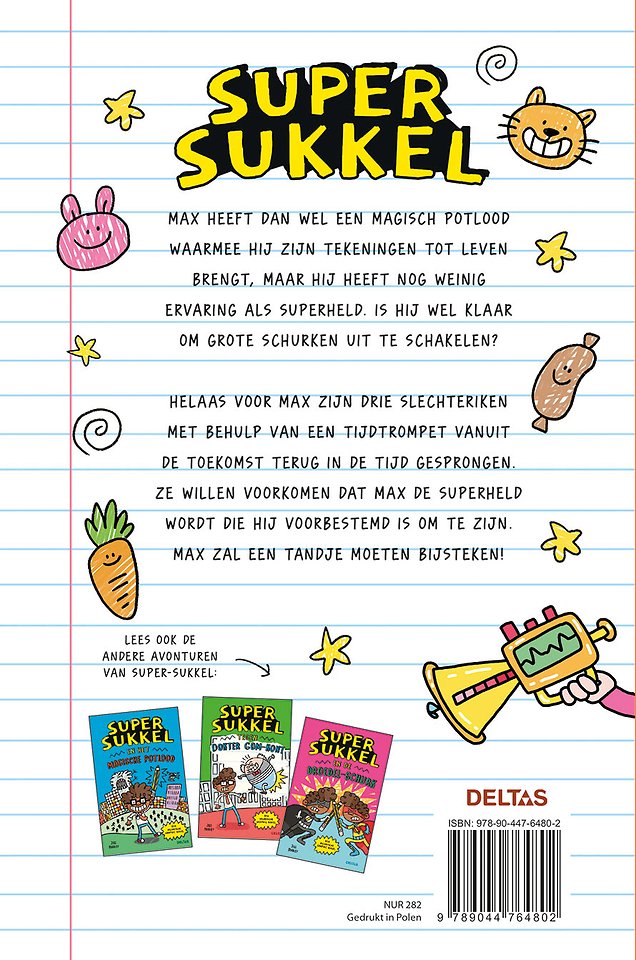 SUPER
SUKKEL
MAX HEEFT DAN WEL EEN MAGISCH POTLOOD
WAARMEE HIJ ZIJN TEKENINGEN TOT LEVEN
BRENGT, MAAR HIJ HEEFT NOG WEINIG
ERVARING ALS SUPERHELD. IS HIJ WEL KLAAR
OM GROTE SCHURKEN UIT TE SCHAKELEN?
HELAAS VOOR MAX ZIJN DRIE SLECHTERIKEN
MET BEHULP VAN EEN TIJDTROMPET VANUIT
DE TOEKOMST TERUG IN DE TIJD GESPRONGEN.
ZE WILLEN VOORKOMEN DAT MAX DE SUPERHELD
WORDT DIE HIJ VOORBESTEMD IS OM TE ZIJN.
MAX ZAL EEN TANDJE MOETEN BIJSTEKEN!
LEES OOK DE
ANDERE AVONTUREN
VAN SUPER-SUKKEL:
SUPER
SUKKEL
EN HET
MAGISCHE POTLOOD
SUPER
SUKKEL
TEGEN
DOKTER GOM-KONT
SUPER
SUKKEL
EN DE
DROEDEL-SCHURK
DELTAS
ISBN: 978-90-447-6480-2
9 789044 764802
NUR 282
Gedrukt in Polen